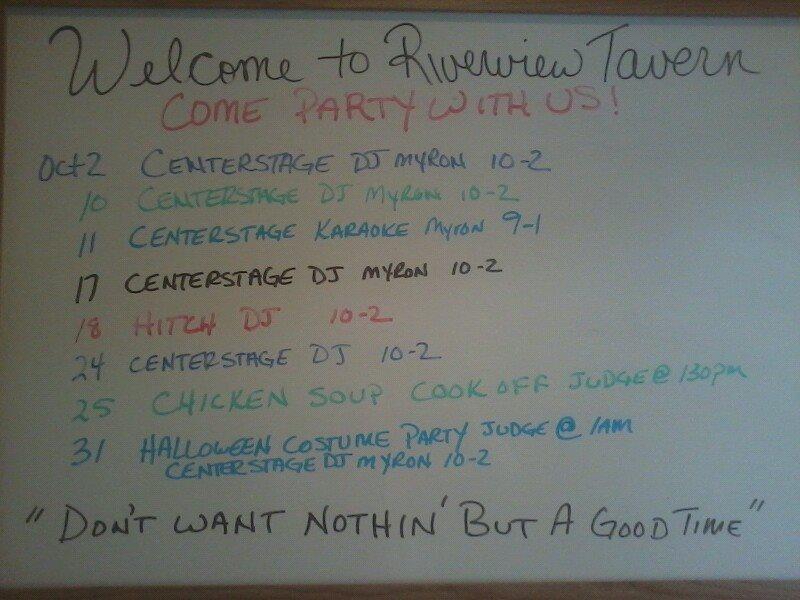 Welcome to Riverview Tavern
COME PARTY WITH US!
Oct 2 CENTERSTAGE DJ MYRON 10-2
10 CENTERSTAGE DJ MYRON 10-2
11 CENTERSTAGE KARAOKE MYRON 9-1
17 CENTERSTAGE DJ MYRON 10-2
18 HITCH DJ 10-2
24 CENTERSTAGE DJ 10-2
25 CHICKEN SOUP COOK OFF JUDGE @ 130pm
31 HALLOWEEN COSTUME PARTY JUDGE @ 1AM
CENTERSTAGE DJ MYRON 10-2
"DON'T WANT NOTHIN' BUT A GOOD TIME"